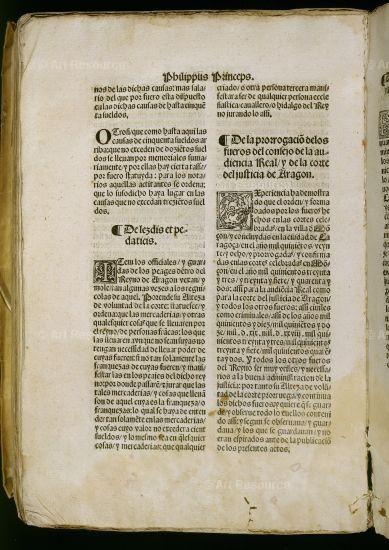 Philippus Princeps.
nos de las dichas causas: mas sala-
rio del que por fuero esta dispuesto
en las dichas causas de hasta cinquẽ
ta sueldos.
Otrosi que como hasta aqui las
causas de cinquenta sueldos ar
riba que no exceden de doziẽtos suel
dos se lleuan por memoriales suma
riamente/ y por ellas hay cierta tassa/
por fuero statuyda: para los nota-
rios aquellas actitantes se ordena:
que lo susodicho haya lugar en las
causas que no excedan trezientos suel
dos.
¶ De lezdis et pe-
daticis.
Item los officiales/ y guar
das de los peages dẽtro del
Reyno de Aragon vexan/ y
molestan algunas vezes a los regni-
colas de aquel. Porende su Alteza
de voluntad de la corte statuesce/ y
ordena: que las mercaderias/ y otras
qualesquier cosas que se lleuaren por
el reyno/ de personas frãcas: los que
las lleuarẽ aun que no sean suyas no
tengan necessidad de lleuar poder de
cuyas fueren si no tan solamente las
franquezas de cuyas fueren/ y mani-
festar las en los peages del dicho rey
no: por donde passarẽ: y jurar que las
tales mercaderias/ y cosas que lleuã
son de aquel cuya es la franqueza/ o
franquezas: lo qual se haya de enten-
der tan solamẽte en las mercaderias/
y cosas cuyo valor no excedera cient
sueldos/ y lo mesmo sea en qualquier
cosas/ y mercaderias: que qualquier
criado/ o otra persona tercera mani-
festara ser de qualquier persona eccle
siastica: cauallero/ o hidalgo del Rey
no jurando lo assi.
¶ De la prorrogaciõ de los
fueros del consejo de la au-
diencia Real/ y de la corte
del justicia de Aragon.
Experiencia ha demostra
do que el orden/ y forma
dados por los fueros he-
chos en las cortes cele-
bradas/ en la villa de Mõ
çon/ y concluydas en la ciudad de Ca
ragoça/ en el año mil quinientos/ veyn
te/ y ocho/ y prorrogada/ y confirma
da en las cortes/ celebradas en Mõ-
çon/ en el año mil quinientos treynta
y tres/ y treynta y siete/ y quarenta y
dos: assi para la audiencia Real como
para la corte del justicia de Aragon/
y todos los otros fueros: assi ciuiles
como criminales/ assi de los años mil
quinientos y diez/ mil quiniẽtos y do-
ze/ mil quinientos
treynta y tres/ mil quinientos treynta
y siete/ mil quinientos quarenta y
dos. Y todos los otros fueros
del Reyno ser muy vtiles/ y necessa-
rios a la buena administracion de la
justicia: por tanto su Alteza de volũtad
de la corte prorroga/ y continua
los dichos fueros y quiere que se guar
de/ y obserue todo lo en ellos conteni
do assi: y segun se obseruaua/ y guar
daua/ y los que se guardauan/ y no
eran espirados ante de la publicaciõ
de los presentes actos.
© Art Resource